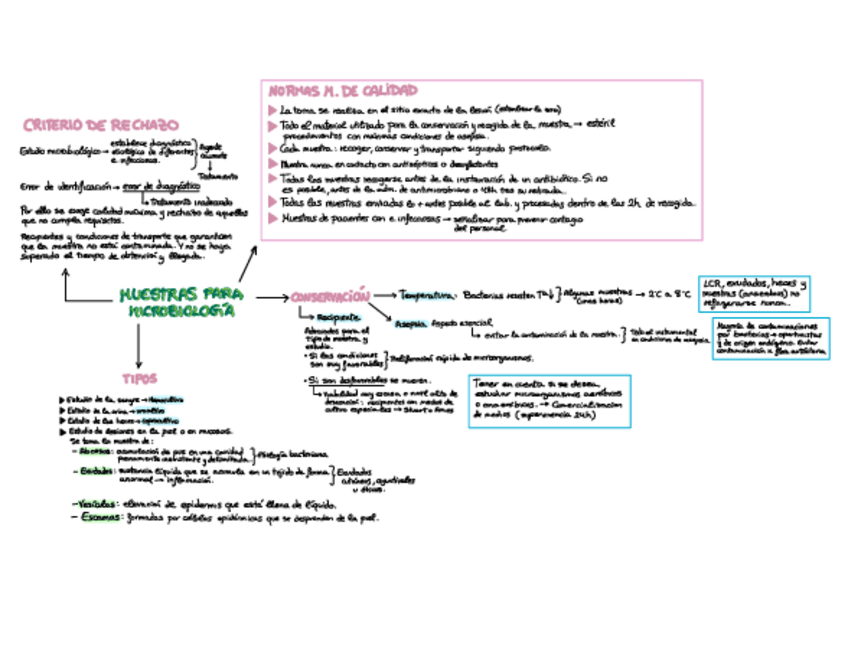 NORMAS M. DE CALIDAD
La toma se realiza en el sitio exacto de la lesión (esterilizar la zona)
Todo el material utilizado para la conservación y recogida de la muestra → estéril
procedimientos con máximas condiciones de asepsia.
Cada muestra: recoger, conservar y transportar siguiendo protocolo.
Muestra nunca en contacto con antisépticos o desinfectantes
Todas las muestras recogerse antes de la instauración de un antibiótico. Si no
es posible, antes de la adm. de antimicrobiano o 48h tras su retirada.
Todas las muestras enviadas lo + antes posible al lab. y procesadas dentro de las 2h de recogida.
Muestras de pacientes con e. infecciosas → señalizar para prevenir contagio
del personal.
CRITERIO DE RECHAZO
Estudio microbiológico → establece diagnóstico
etiológico de diferentes
e. infecciosas.
Agente
causante
Tratamiento
Error de identificación → error de diagnóstico
Tratamiento inadecuado
Por ello se exige calidad máxima y rechazo de aquellas
que no cumpla requisitos.
Recipientes y condiciones de transporte que garanticen
que la muestra no está contaminada. Y no se haya
superado el tiempo de obtención y llegada.
MUESTRAS PARA
MICROBIOLOGÍA
CONSERVACIÓN
Temperatura: Bacterias resisten Tª↓ Algunas muestras → 2°C a 8°C
(unas horas)
LCR, exudados, heces y
muestras (anaerobios) no
refrigerarse nunca.
Asepsia. Aspecto esencial
evitar la contaminación de la muestra. Todo el instrumental
en condiciones de asepsia
Mayoría de contaminaciones
por bacterias → oportunistas
y de origen endógeno. Evitar
contaminación x flora
Recipiente
Adecuados para el
tipo de muestra y
estudio.
• Si las condiciones
son muy favorables Proliferación rápida de microorganismos.
• Si son desfavorables se mueren.
Viabilidad muy escasa o nivel alto de
desecación: recipientes con medios de
cultivo especiales → Stuart o Amies
Tener en cuenta si se desea
estudiar microorganismos aeróbicos
o anaeróbicos. → Comercialización
de medios (supervivencia 24h)
TIPOS
Estudio de la sangre → Hemocultivo
Estudio de la orina → urocultivo
Estudio de las heces → coprocultivo
Estudio de lesiones en la piel o en mucosas.
Se toma la muestra de:
- Abscesos: acumulación de pus en una cavidad
previamente inexistente y delimitada. Etiología bacteriana.
- Exudados: sustancia líquida que se acumula en un tejido de forma
anormal → inflamación.
Exudados
- Vesículas: elevación de epidermis que está llena de líquido.
- Escamas: formadas por células epidérmicas que se desprenden de la piel.